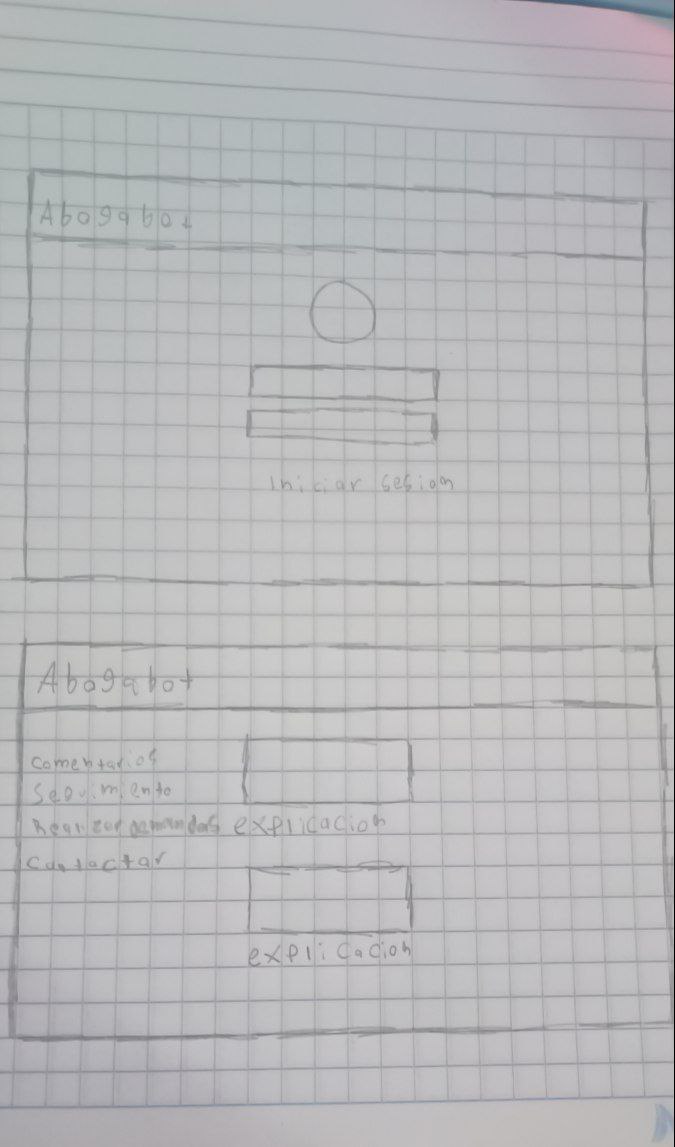 Abogabot
Iniciar sesion
Abogabot
comentarios
seguimiento
Realizar demandas
contactar
explicacion
explicacion